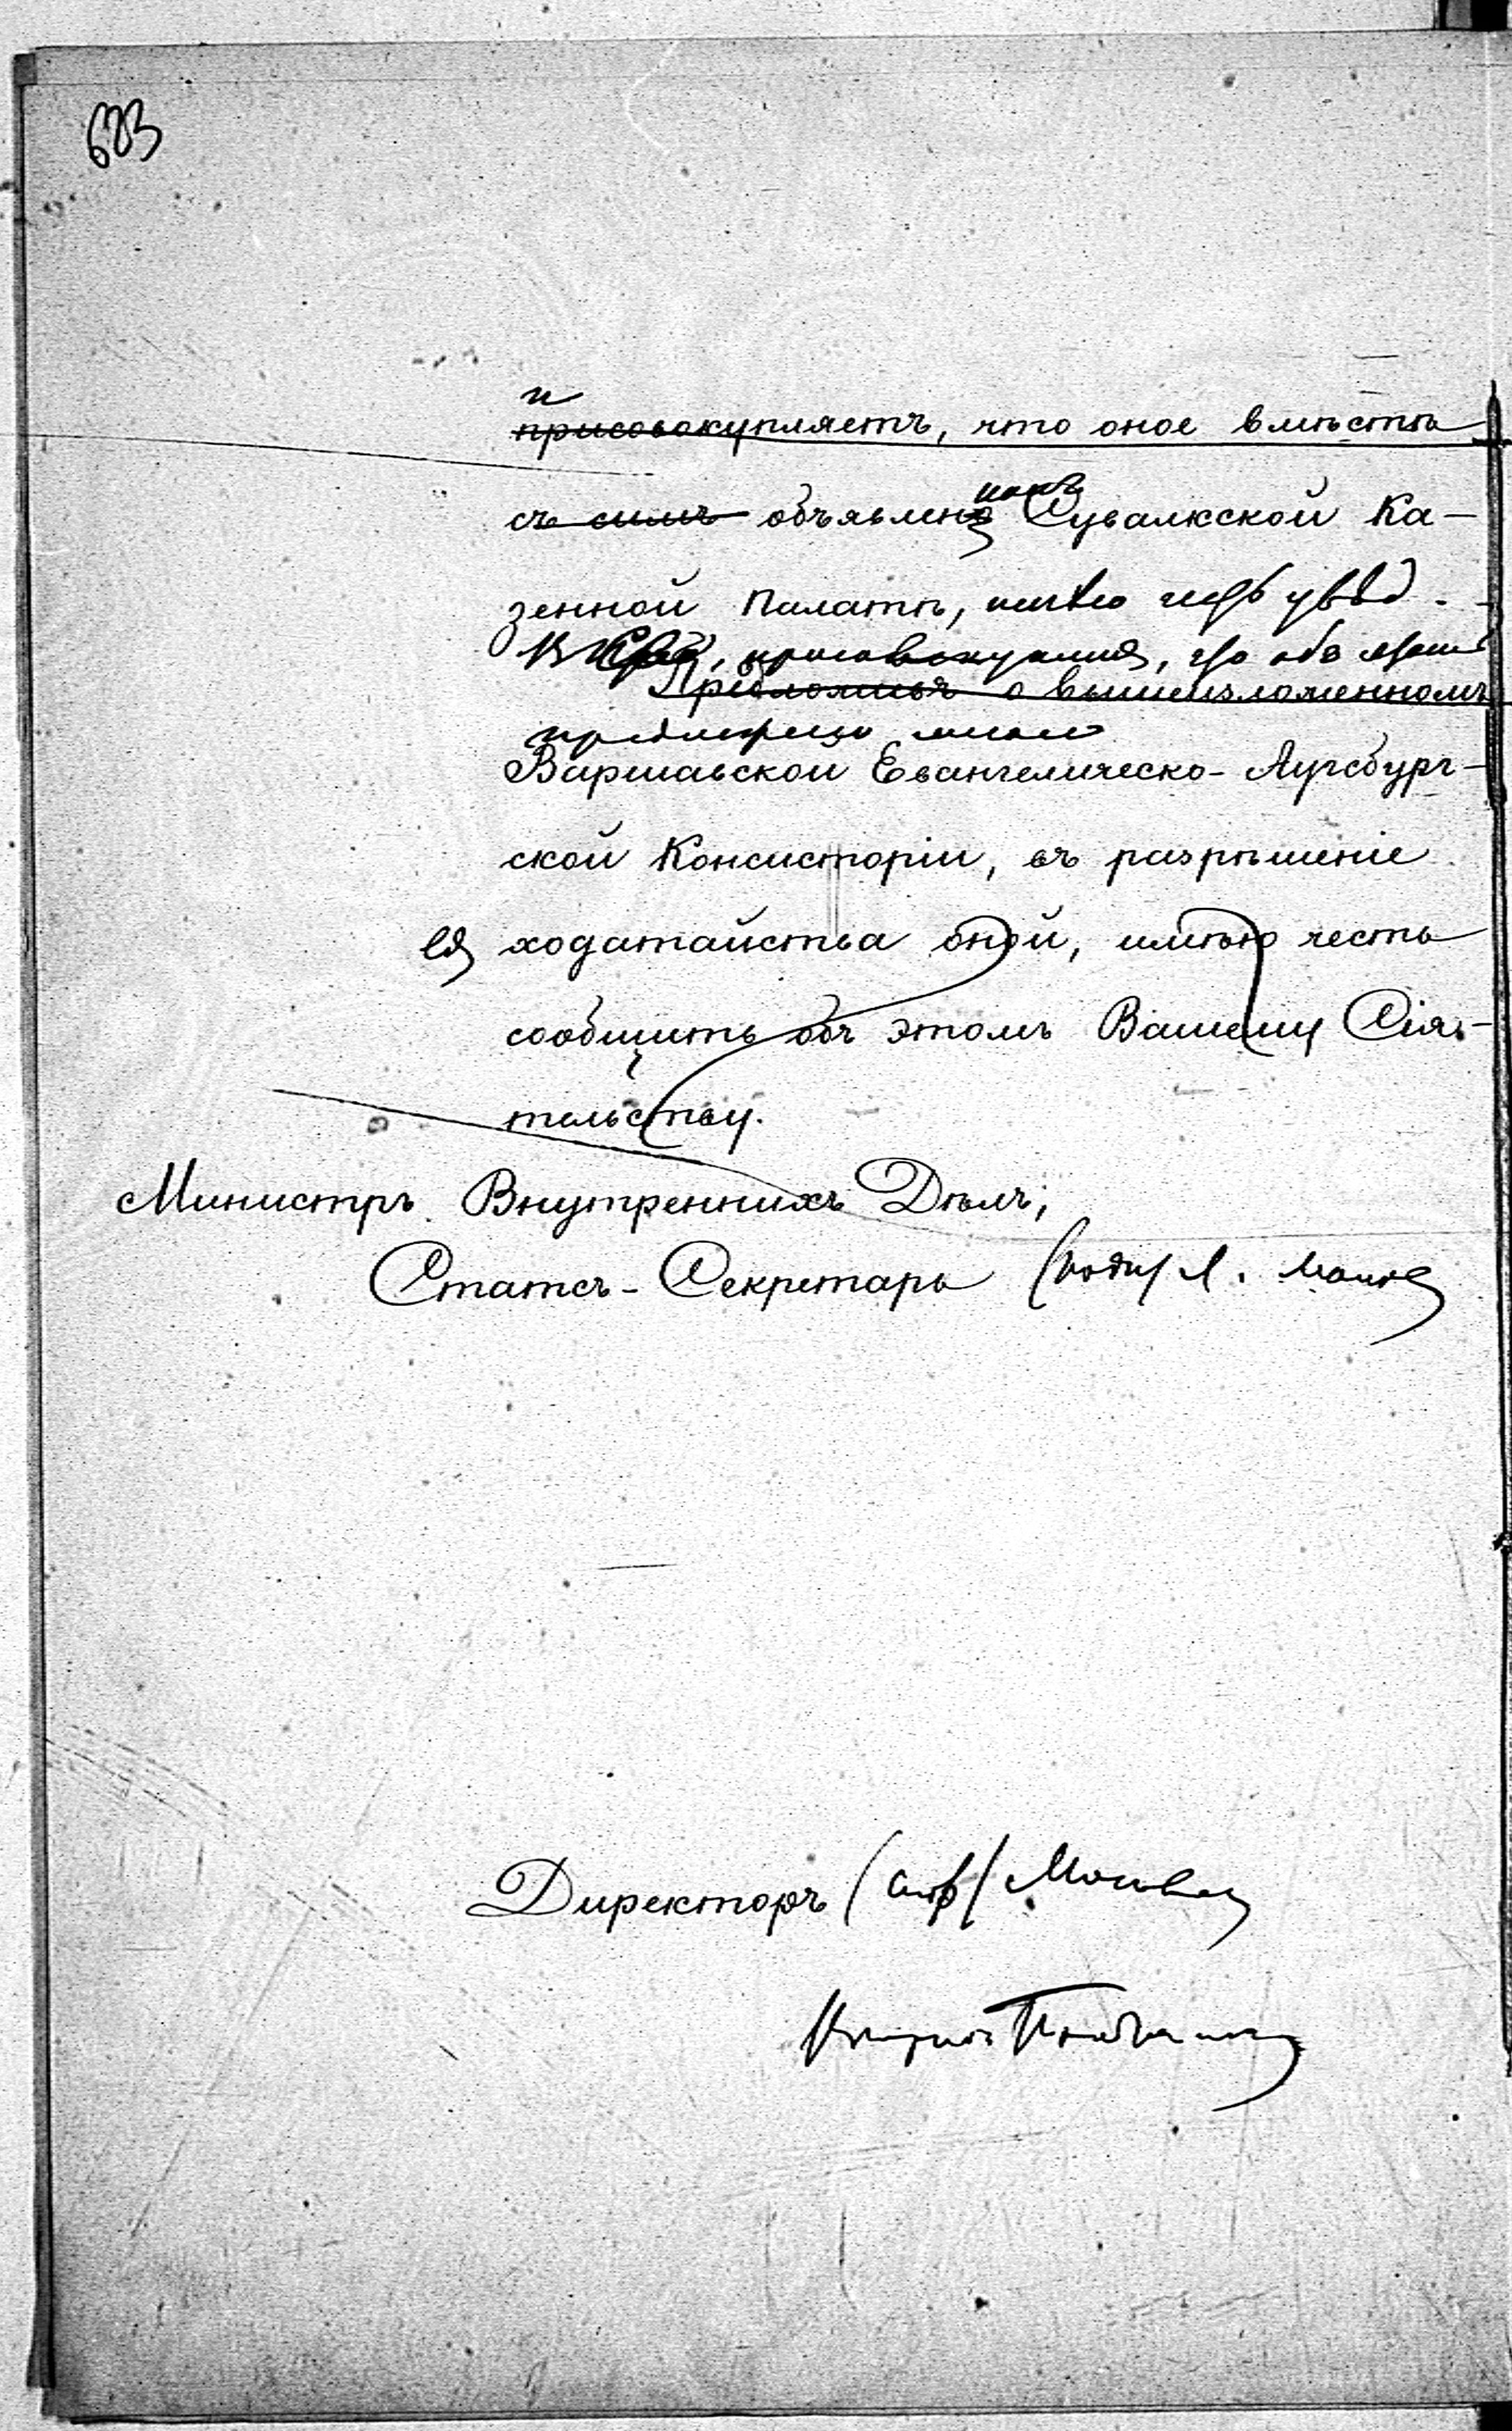 603
и
присовокупляетъ, что оное вмѣстѣ
съ симъ объявлено Сувалкской Ка-
зенной Палатѣ, имѣю честь увѣд.
присовокупляя, что объ этомъ
Предложивъ о вышеизложенномъ
предложено мною
Варшавской Евангелическо-Аугсбург-
ской Консисторіи, въ разрѣшеніе
ея ходатайства оной, имѣю честь
сообщить объ этомъ Вашему Сія-
тельству.
Министръ Внутреннихъ Дѣлъ,
Статсъ-Секретарь (подп) Л. Маковъ
Директоръ (скр) Мосоловъ